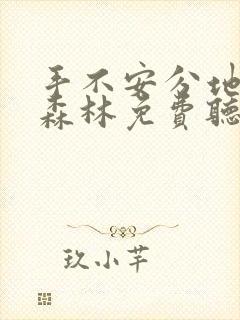 手不安分地
森林免费聽
玖小芊